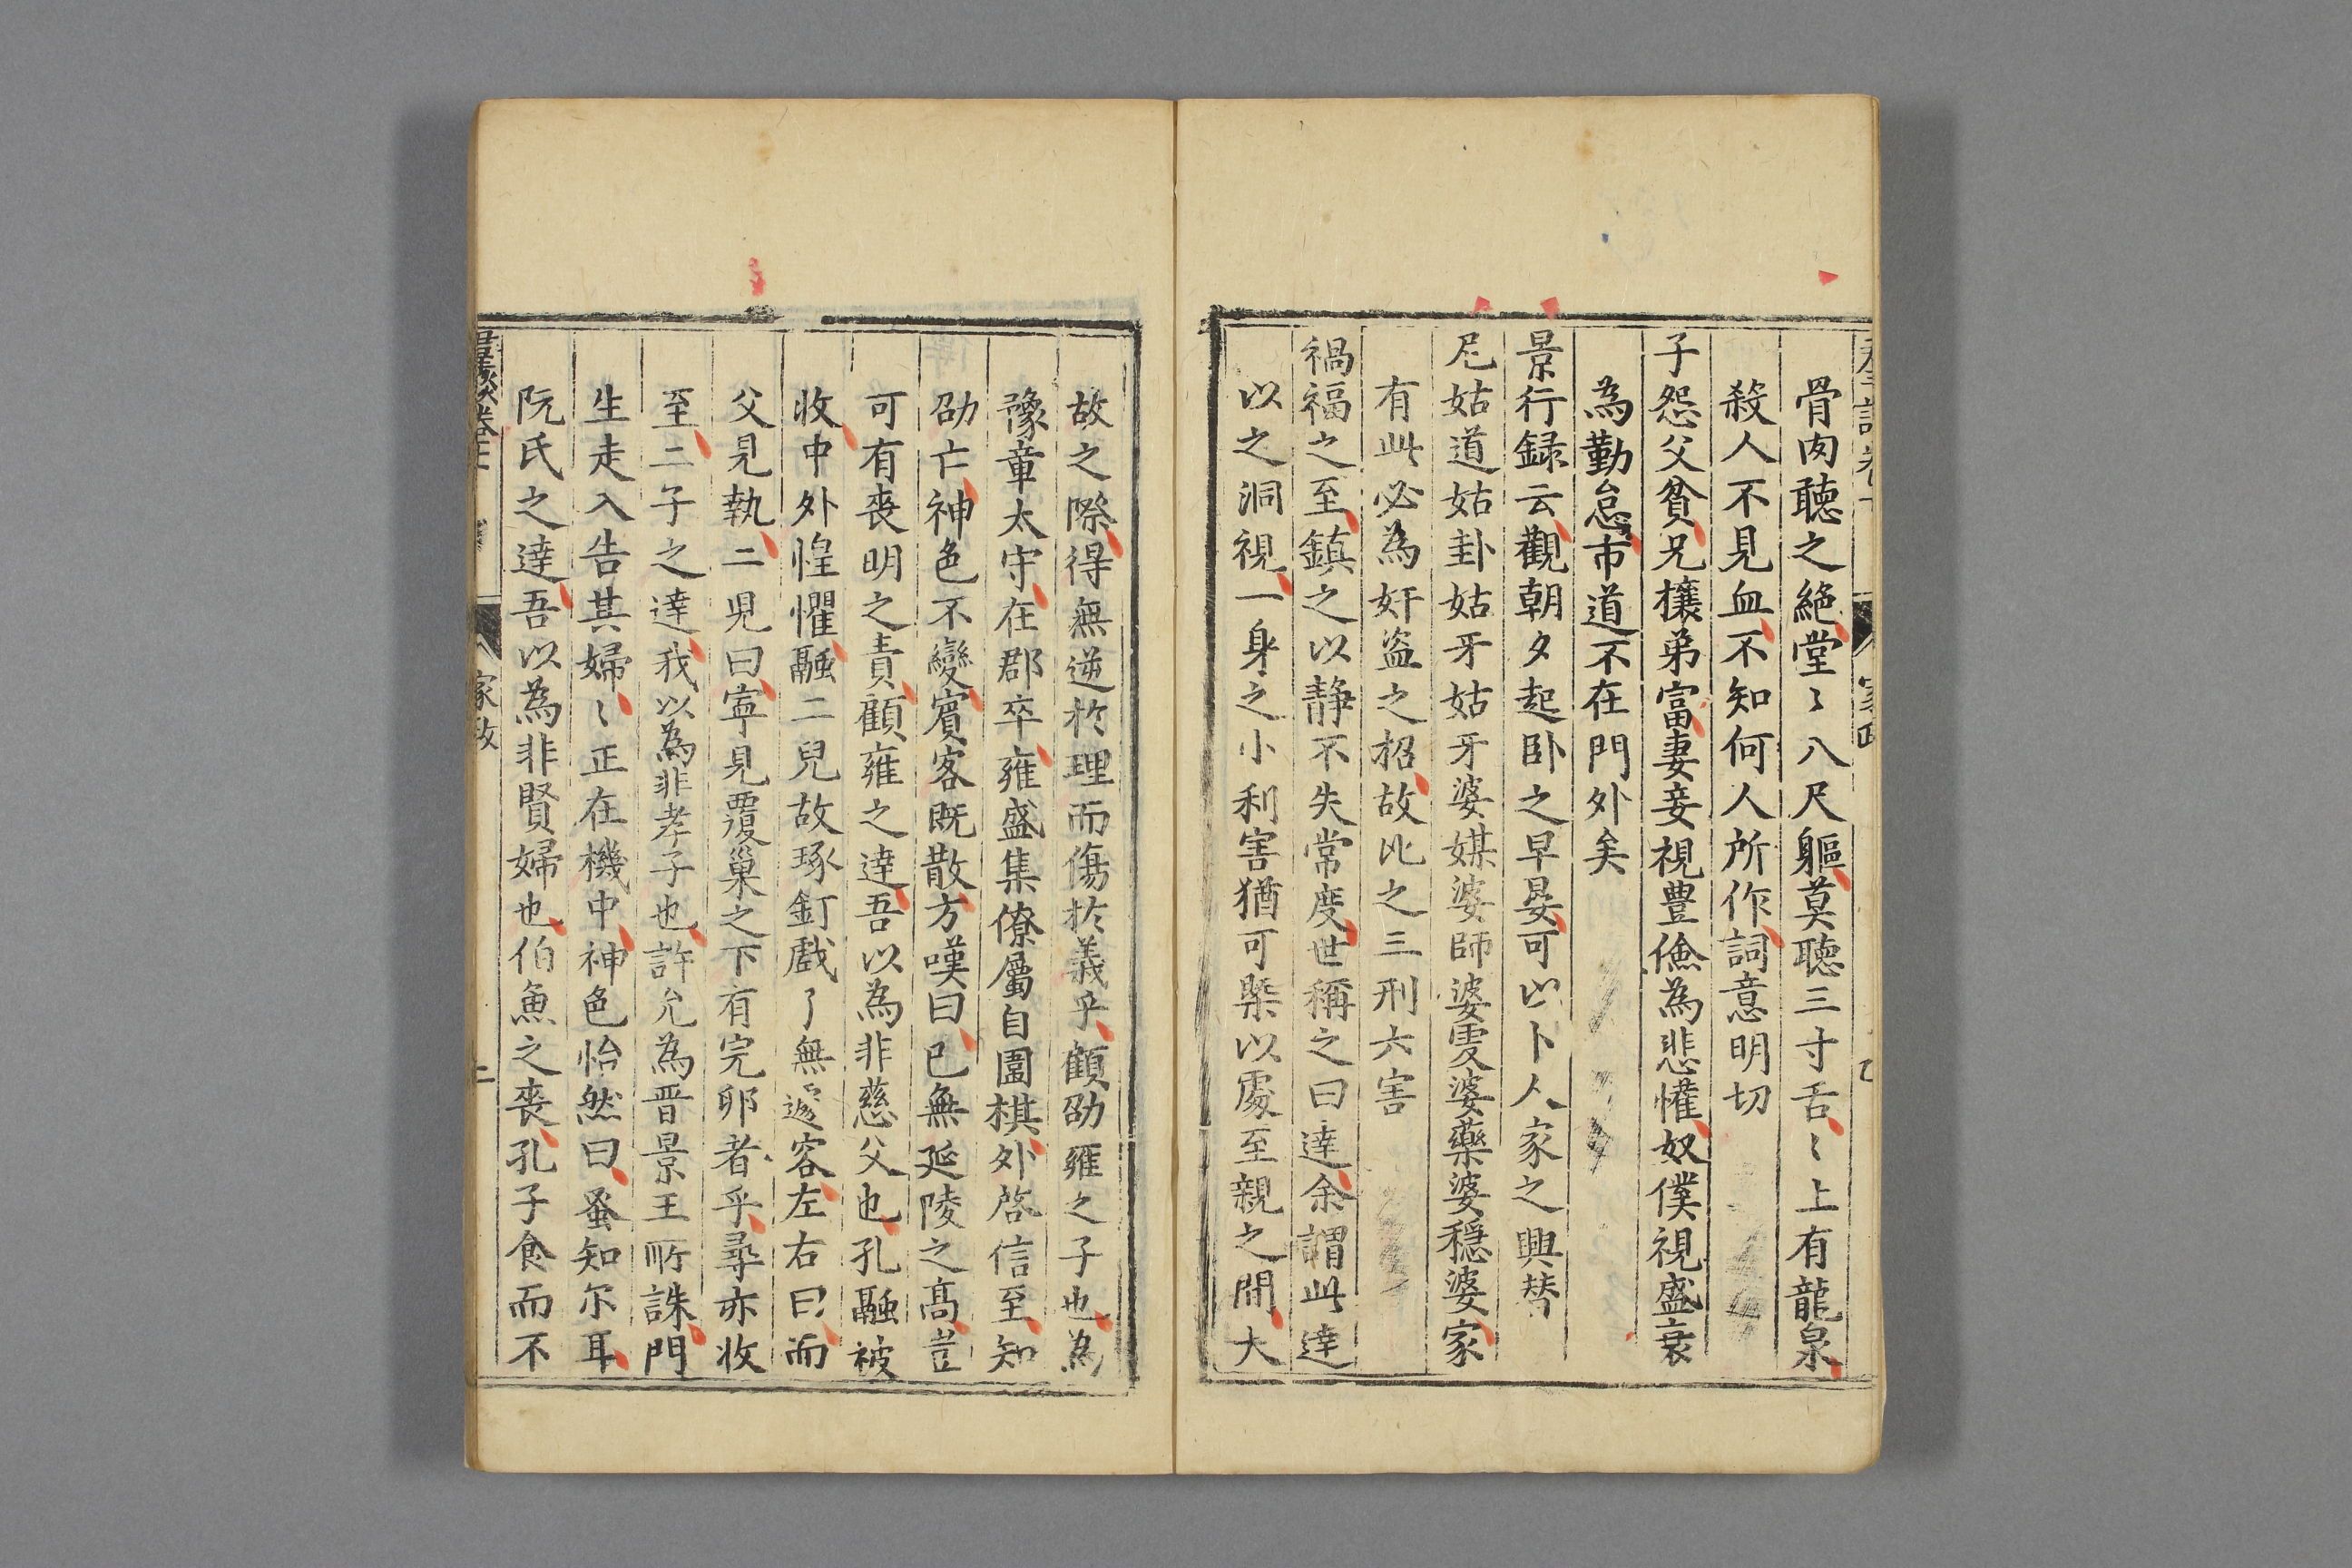 骨肉聽之絕堂〻八尺軀莫聽三寸舌〻上有龍泉
殺人不見血不知何人所作詞意明切
子怨父貧兄攘弟富妻妾視豊儉為悲懽奴僕視盛衰
為勤怠市道不在門外矣
景行録云觀朝夕起卧之早晏可以卜人家之興替
尼姑道姑卦姑牙姑牙婆媒婆師婆虔婆藥婆穩婆家
有此必為奸盗之招故比之三刑六害
禍福之至鎮之以静不失常度世稱之曰達余謂此達
以之洞視一身之小利害猶可槩以處至親之間大
故之際得無逆於理而傷於義乎顧劭雍之子也為
豫章太守在郡卒雍盛集僚屬自圍棋外啓信至知
劭亡神色不變賓客既散方嘆曰已無延陵之髙豈
可有喪明之責顧雍之達吾以為非慈父也孔融被
收中外惶懼融二兒故琢釘戲了無遽容左右曰而
父見執二児曰寧見覆巢之下有完卵者乎尋亦收
至二子之達我以為非孝子也許允為晋景王所誅門
生走入告其婦〻正在機中神色怡然曰蚤知尔耳
阮氏之達吾以為非賢婦也伯魚之喪孔子食而不
家政